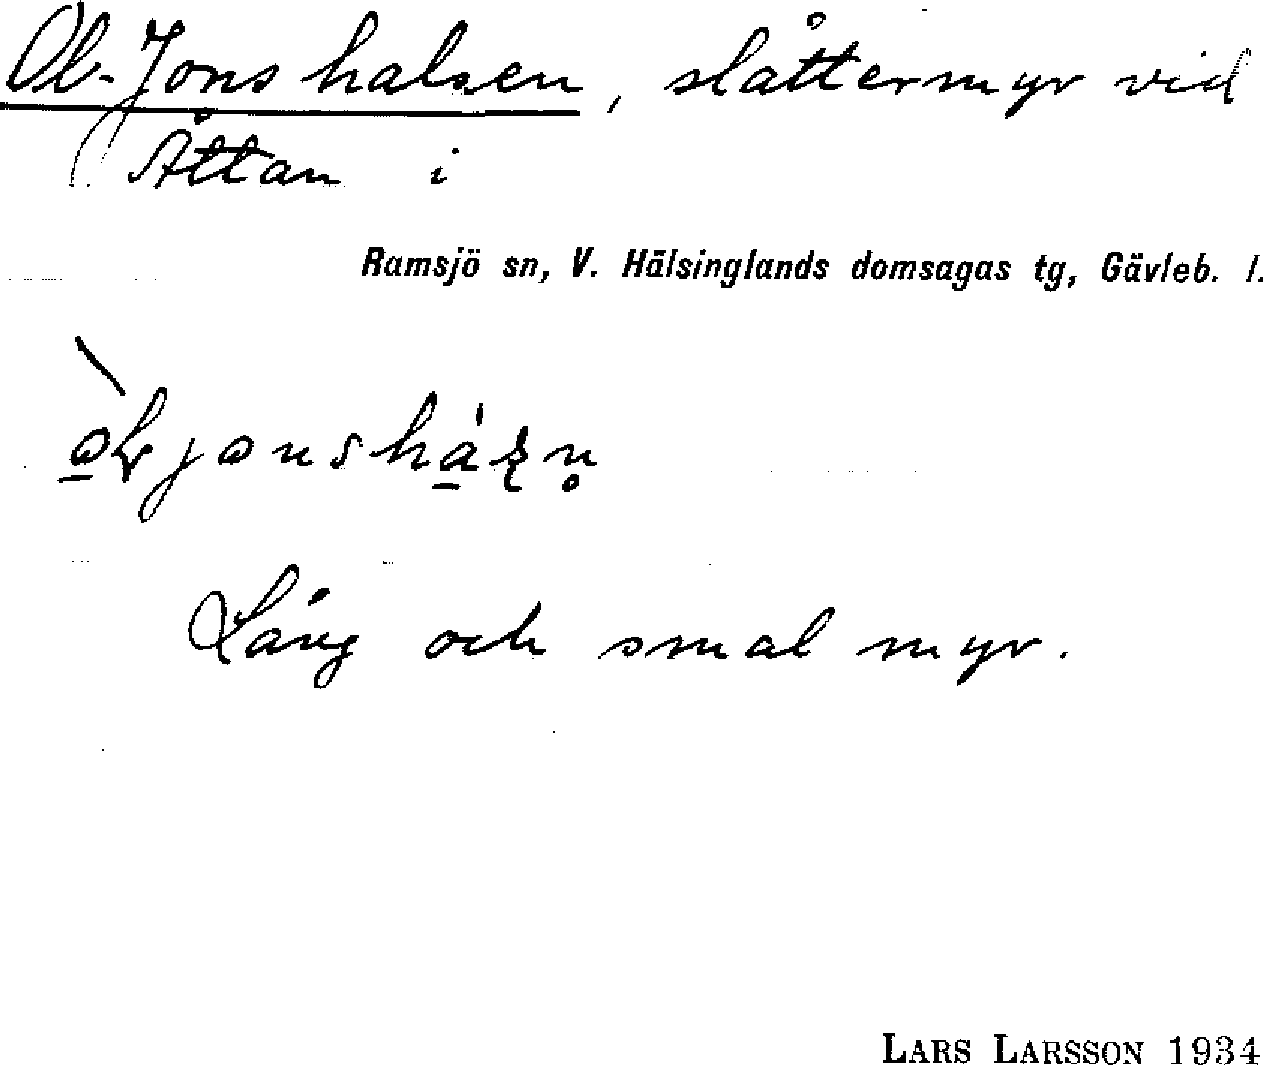 Ol-Jonshalsen, slåttermyr vid
Åttan i
Ramsjö sn, V. Hälsinglands domsagas tg, Gävleb. l.
Lång och smal myr.
LARS LARSSON 1934